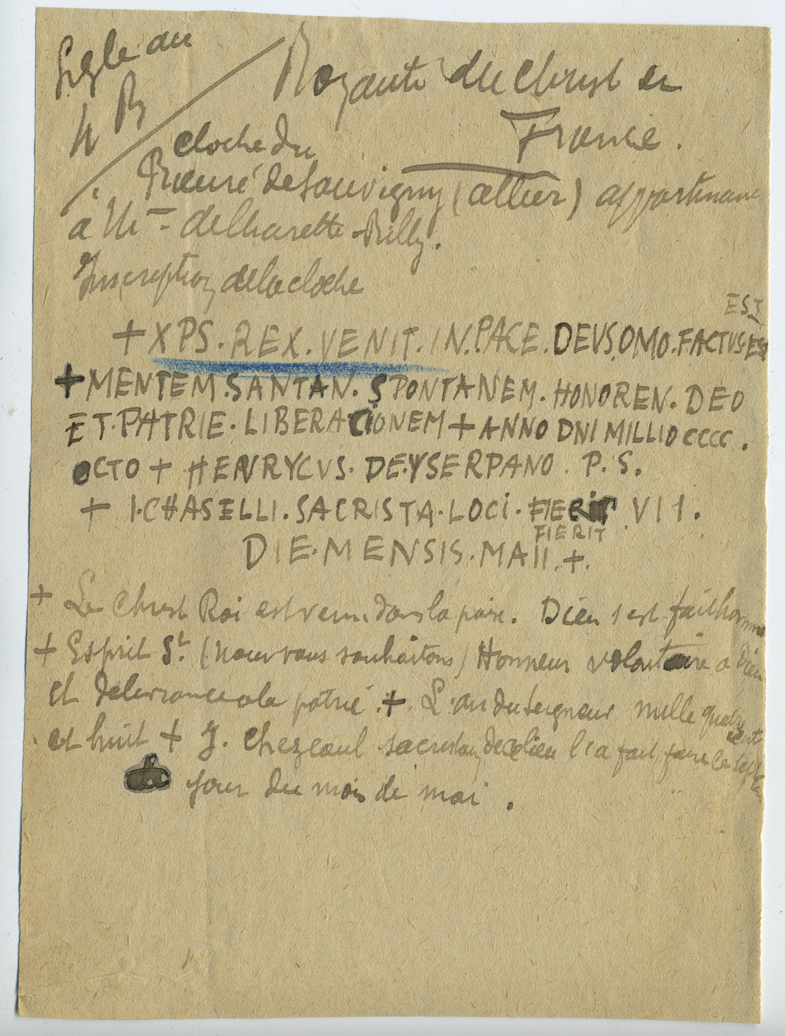 Sigle au
4 B
Royauté du Christ en
France.
cloche du
Prieuré de Souvigny (allier) appartenant
à Mme de Charette-Billy.
Inscription de la cloche
EST
+ XPS. REX. VENIT. IN. PACE. DEUS, OMO. FACTUS EST
+ MENTEM. SANTAN. SPONTANEM. HONOREN. DEO
ET. PATRIE. LIBERACIONEM + ANNO DNI MILLIO CCCC.
OCTO + HENRYCVS. DE.YSERPANO. P. S.
+ I. CHASELLI. SACRISTA. LOCI. FIERIT VII.
FIERIT
DIE. MENSIS. MAII. +.
+ Le Christ Roi est venu dans la paix. Dieu s'est fait homme
+ Esprit St. (nous vous souhaitons) Honneur volontaire à Dieu
et délivrance à la patrie. + L'an du Seigneur mille quatre cent
et huit + J. Chezeaul sacristain de ce lieu l'a fait faire le sept
jour du mois de mai.